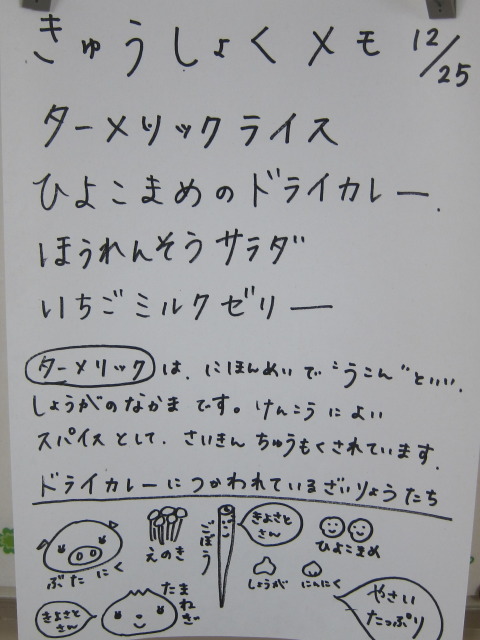 きゅうしょくメモ 12/25
ターメリックライス
ひよこまめのドライカレー.
ほうれんそうサラダ
いちごミルクゼリー
ターメリックは、にほんめいで"うこん"といい、
しょうがのなかまです。けんこうによい
スパイスとして、さいきんちゅうもくされています。
ドライカレーにつかわれているざいりょうたち
ぶたにく
えのき
ごぼう
きよさとさん
ひよこまめ
しょうが
にんにく
きよさとさん
たまねぎ
やさい
たっぷり